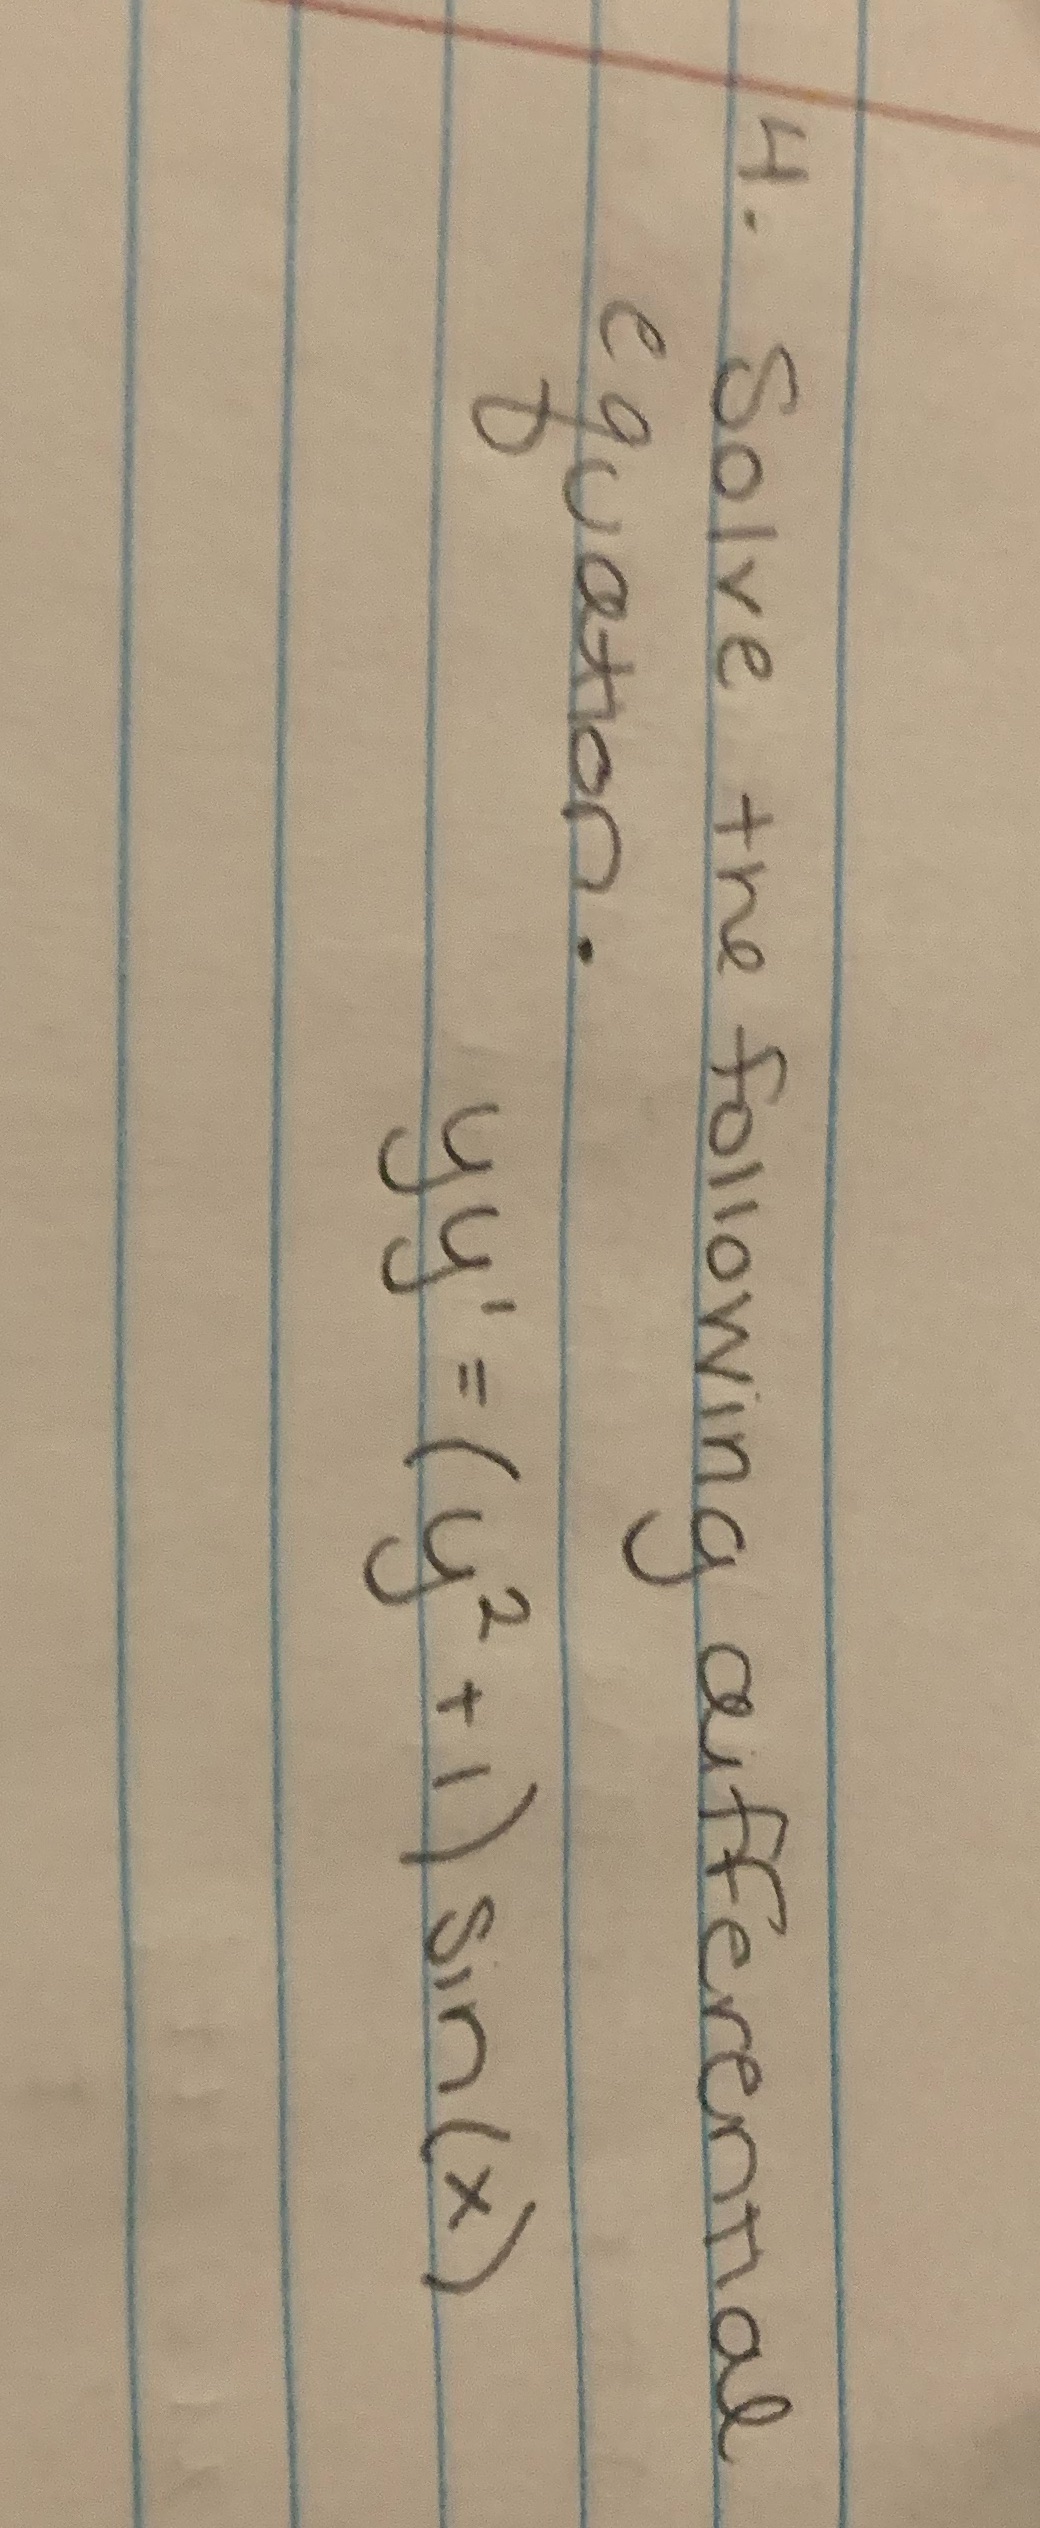 4. Solve the following differential
equation.
yy' = (y² + 1) sin(x)